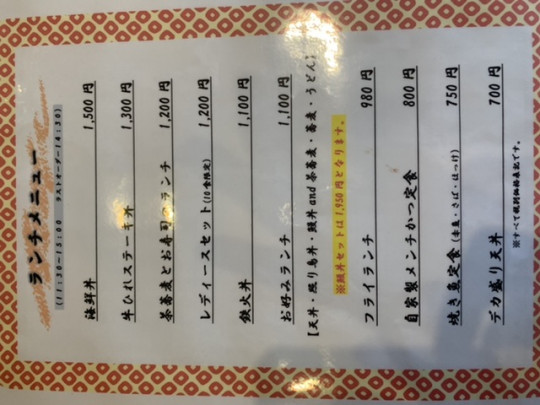 ランチメニュー
(11:30~15:00 ラストオーダー14:30)
海鮮丼 1,500円
牛ひれステーキ丼 1,300円
茶蕎麦とお寿司のランチ 1,200円
レディースセット(10食限定) 1,200円
鉄火丼 1,100円
お好みランチ 1,100円
【天丼・照り鳥丼・鰻丼 and 茶蕎麦・蕎麦・うどん】
※鰻丼セットは1,950円となります。
フライランチ 980円
自家製メンチかつ定食 800円
焼き魚定食(赤魚・さば・ほっけ) 750円
デカ盛り天丼 700円
※すべて税別価格表記です。